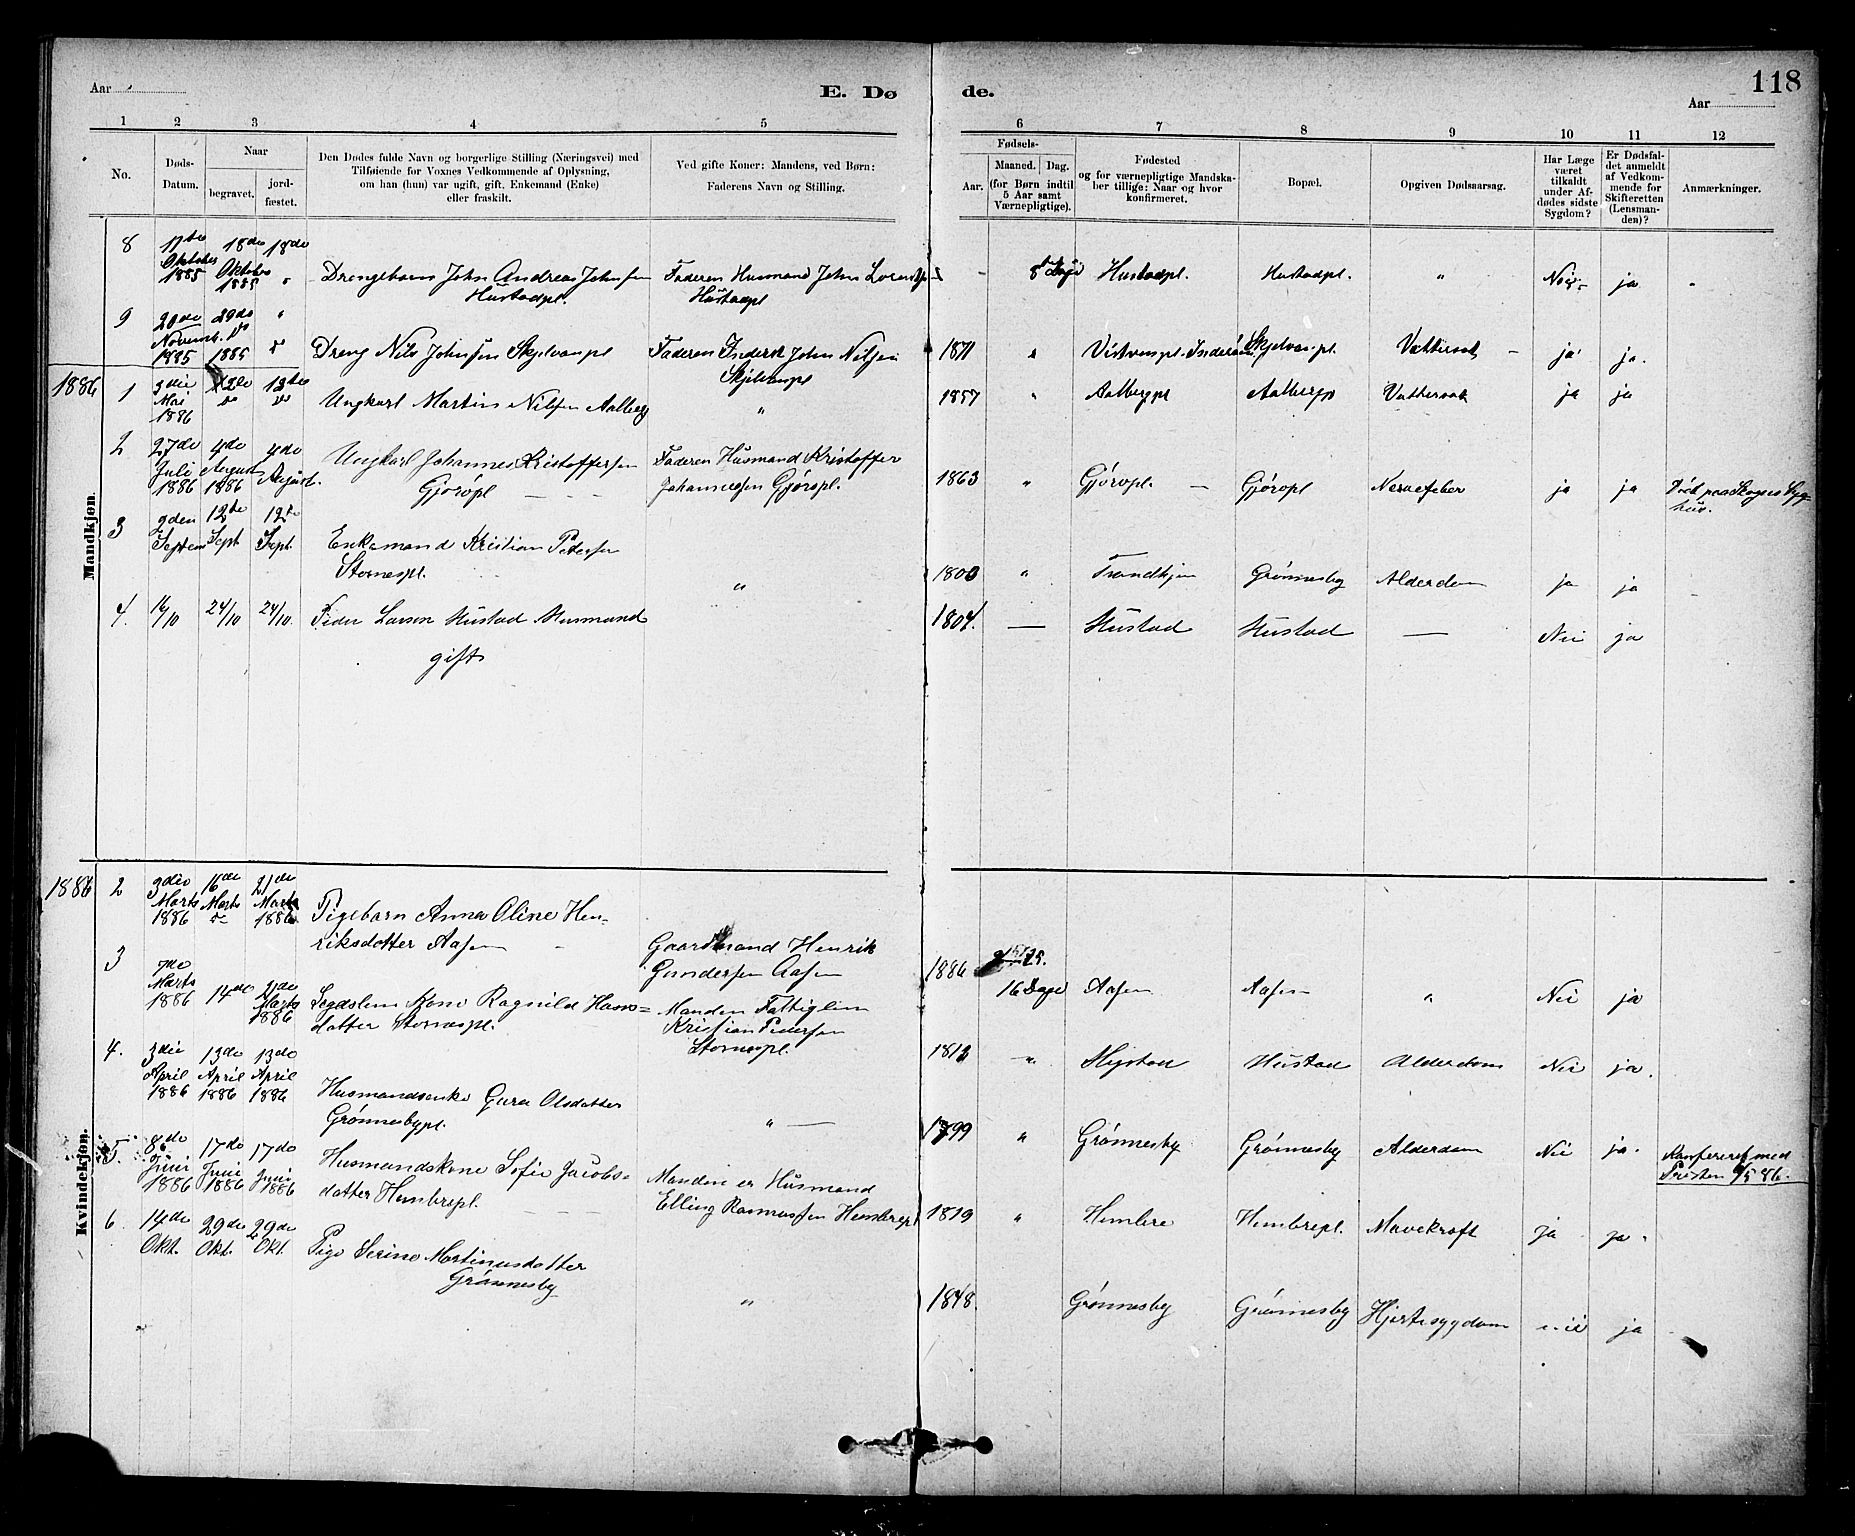 Aar
E. Dø
de.
118
Aar
1 2 3 4 5
6 7 8 9 10 11 12
No.
Døds-
Datum.
Naar
begravet.
jord-
fæstet.
Den Dødes fulde Navn og borgerlige Stilling (Næringsvei) med
Tilføiende for Voxnes Vedkommende af Oplysning,
om han (hun) var ugift, gift, Enkemand (Enke)
eller fraskilt.
Ved gifte Koner: Mandens, ved Børn:
Faderens Navn og Stilling.
Fødsels-
Aar.
Maaned. Dag.
(for Børn indtil
5 Aar samt
Værnepligtige).
Fødested
og for værnepligtige Mandska-
ber tillige: Naar og hvor
konfirmeret.
Bopæl.
Opgiven Dødsaarsag.
Har Læge
været
tilkaldt
under Af-
dødes sidste
Sygdom?
Er Dødsfal-
det anmeldt
af Vedkom-
mende for
Skifteretten
(Lensman-
den)?
Anmærkninger.
Mandkjøn.
8 17de Oktober 1885 18de Oktober 1885 18de "
Drengebarn John Andreas Johnsen
Hustadpl.
Faderen Husmand John
Hustadpl
8 Dage Hustadpl. Hustadpl. " Nei ja "
9 20de Novemb. 1885 29de do 1885 " do
Dreng Nils Johnsen Skjelvanpl
Faderen John Nilsen
Skjelvanpl
1871 " Skjelvanpl. Vattersot ja ja.
1886 1 3die Mai 1886 12de do 12te do
Ungkarl Martin Nilsen Aalberg
"
1857 " Aalbergpl Aalbergpl Vattersot ja ja
2 27de Juli 1886 4de August 1886 4de August.
Ungkarl Johannes Kristoffersen
Gjörvpl
Faderen Husmand Kristoffer
Johannessen Gjörvpl.
1863 " Gjörvpl. Gjörvpl Nervefeber ja ja Död paa Skogns Syg-
hus.
3 2den Septem 12te Sept 12te Sept.
Enkemand Kristian Pedersen
Stornespl.
"
1800 " Trondhjem Grönnesby Alderdom ja ja
4. 16/10 24/10 24/10.
Peder Larsen Hustad Husmand
gift
1804. — Hustad Hustad — Nei ja
Kvindekjøn.
1886 2 3die Marts 1886 16de Marts do 21de Marts 1886
Pigebarn Anna Oline Hen-
riksdatter Aasen
Gaardmand Henrik
Gundersen Aasen
1886 16 Dage Aasen Aasen " Nei ja
3 7de Marts 1886 14de 21de Marts 1886
Kone Ragnild Hans=
datter Stornespl.
Manden Fattiglem
Kristian Pedersen
Stornespl.
1812 " Hustad Alderdom Nei ja.
4. 3die April 1886 13de April 1886 13de April 1886
Husmandsenke Guru Olsdatter
Grönnesbypl.
" —
1799 " Grönnesby Grönnesby Alderdom Nei ja. Konfereret med
Presten 9/5 86.
5. 8de Juni 1886 17de Juni 1886 17de Juni 1886
Husmandskone Sofie Jacobs-
datter Hembrepl.
Manden er Husmand
Elling Rasmussen Hembrepl
1819 " Hembre Hembrepl. Mavekræft ja ja.
6. 14de Okt. 29de Okt. 29de Okt.
Pige Serine Martinusdatter
Grönnesby
"
1848. Grönnesby Grönnesby Hjertesygdom nei ja